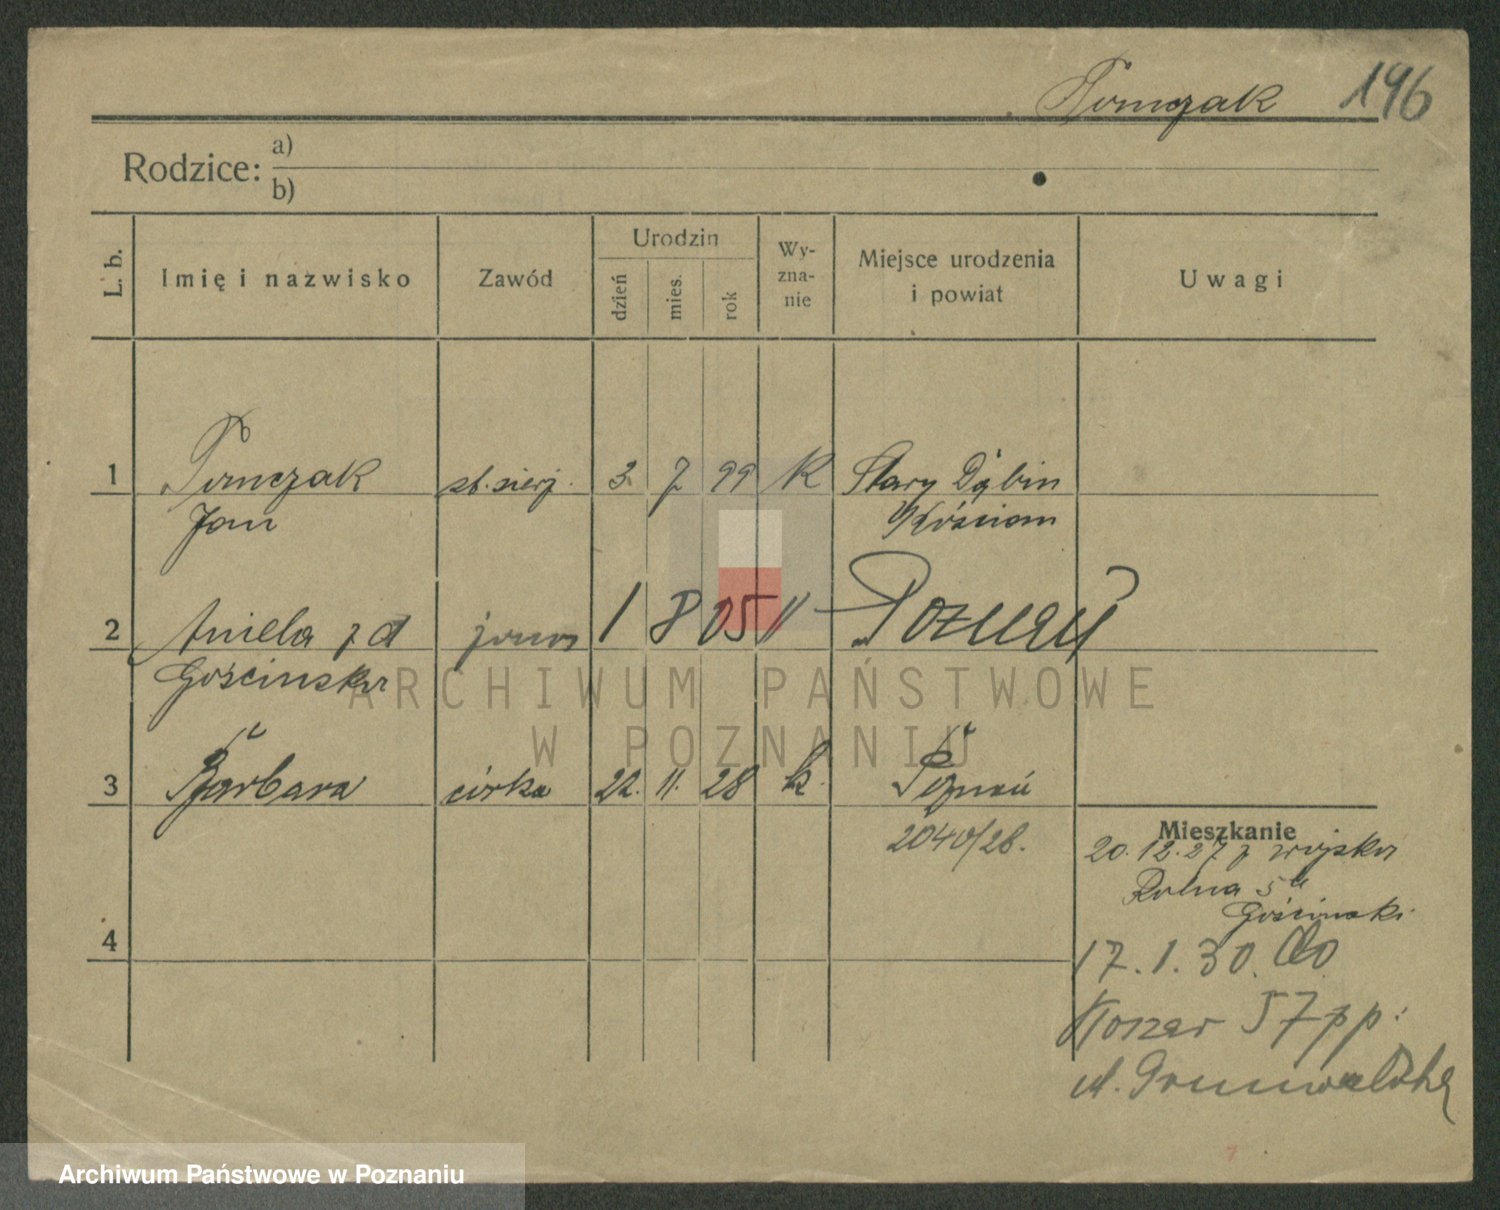 Tomczak 196
Rodzice: a)
b)
L. b. Imię i nazwisko Zawód Urodzin dzień mies. rok Wyznanie Miejsce urodzenia i powiat Uwagi
1 Tomczak st. sierż. 3. 7 99 K Stary Dębin
Jan Kościan
2 Aniela z d żona 1 8 05 " Poznań
Gościnska
ARCHIWUM PAŃSTWOWE
W POZNANIU
3 Barbara córka 22. 11. 28 k. Poznań
2040/28.
Mieszkanie
20.12.27 z wojska
Rolna 5
Gościnski
4
17.1.30. do
Koszar 57 pp.
ul. Grunwaldzka
7
Archiwum Państwowe w Poznaniu